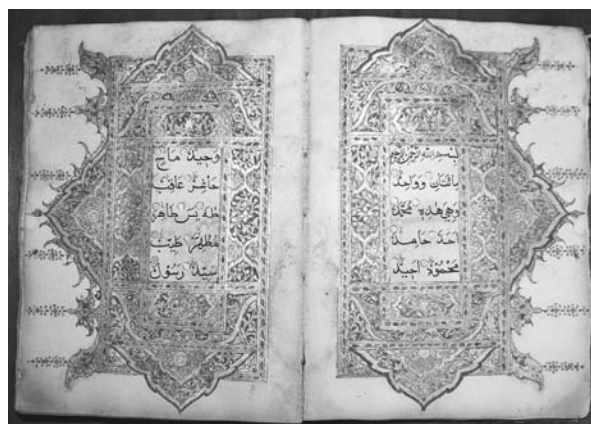 بسم الله الرحمن الرحيم
مائتان وواحد
وهي هذه محمد
احمد حامد
محمود احيد
وحيد ماح
حاشر عاقب
طه يس طاهر
مطهر طيب
سيد رسول